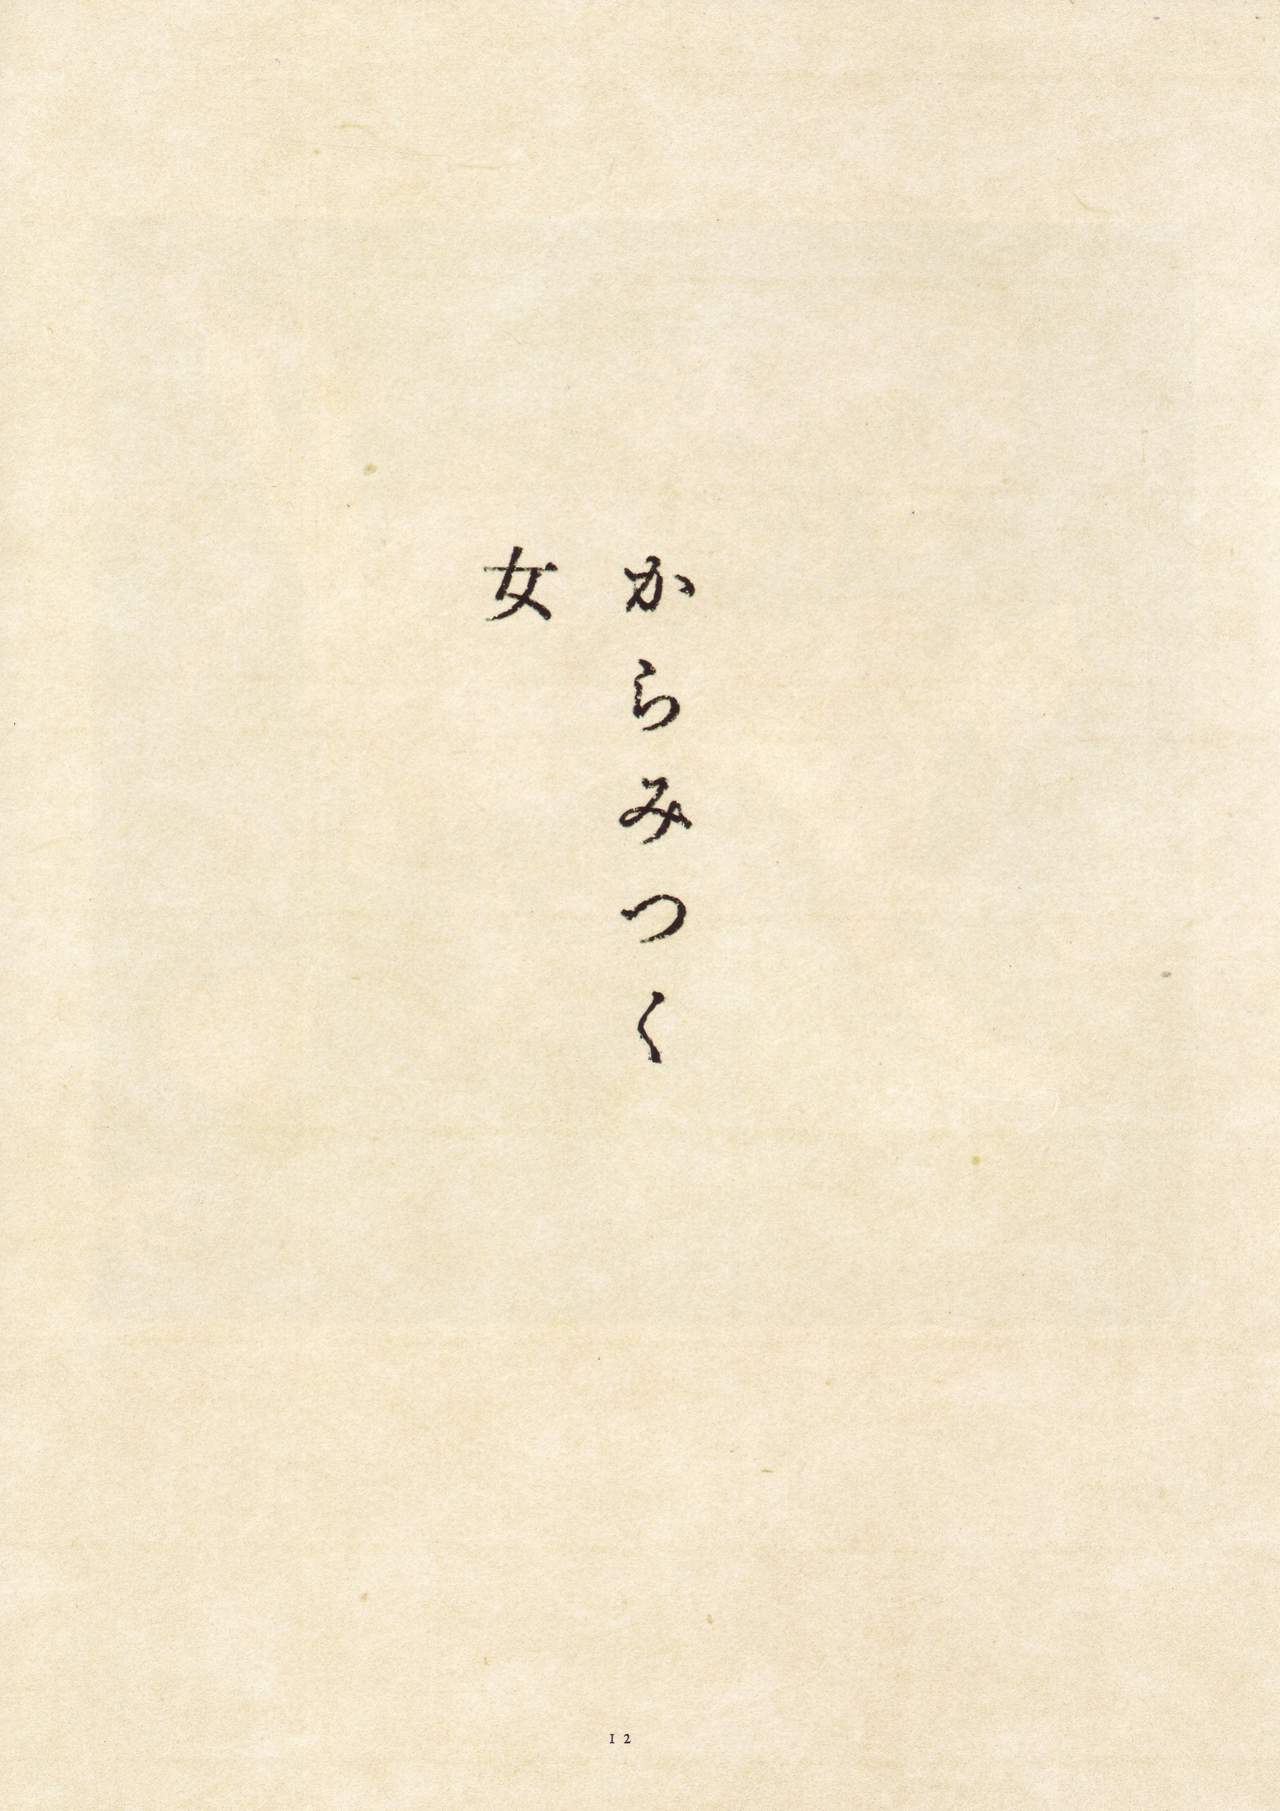 からみつく
女
12